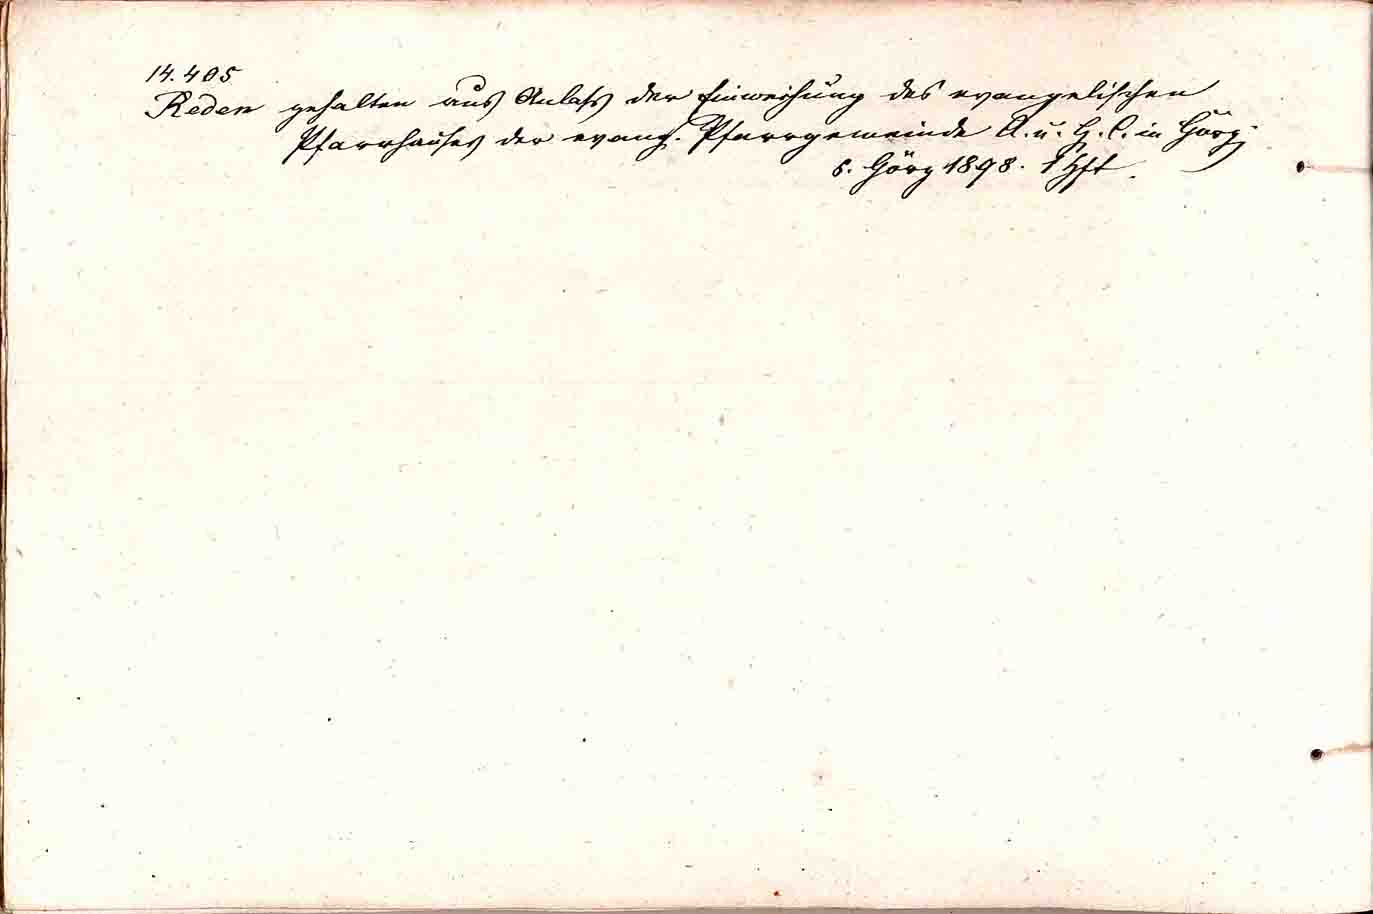 14.405
Reden gehalten aus Anlaß der Einweihung des evangelischen
Pfarrhauses der evang. Pfarrgemeinde A. u. H. C. in Görz.
8. Görz 1898. 1 Hft.